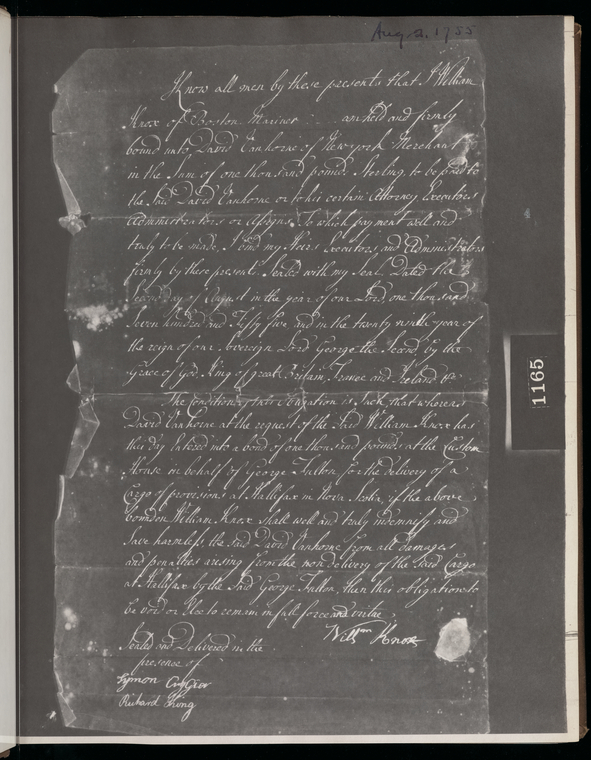 Aug. 2. 1755
Know all men by these presents that I William
Knox of Boston Mariner am held and firmly
bound unto David Vanhorne of New york Merchant
in the Sum of one thousand pounds Sterling to be paid to
the said David Vanhorne or to his certain Attorney Executors
Administrators or Assigns, To which payment well and
truly to be made, I bind my Heirs Executors and Administrators
firmly by these presents Sealed with my Seal. Dated the
Second day of August in the year of our Lord, one thousand
Seven hundred and Fifty five and in the twenty ninth year of
the reign of our Sovereign Lord George the Second by the
Grace of God King of great Britain France and Ireland &c
The Condition of this Obligation is Such, that whereas
David Vanhorne at the request of the Said William Knox has
this day Entered into a bond of one thousand pounds at the Custom
House in behalf of George Fulton for the delivery of a
Cargo of provisions at Hallifax in Nova Scotia, if the above
bounden William Knox shall well and truly indemnify and
Save harmless the Said David Vanhorne from all damages
and penalties arising from the non delivery of the Said Cargo
at Hallifax by the Said George Fulton, then this obligation to
be void or Else to remain in full force and virtue
Willm Knox
Sealed and Delivered in the
presence of
Symon
Richard King
1165